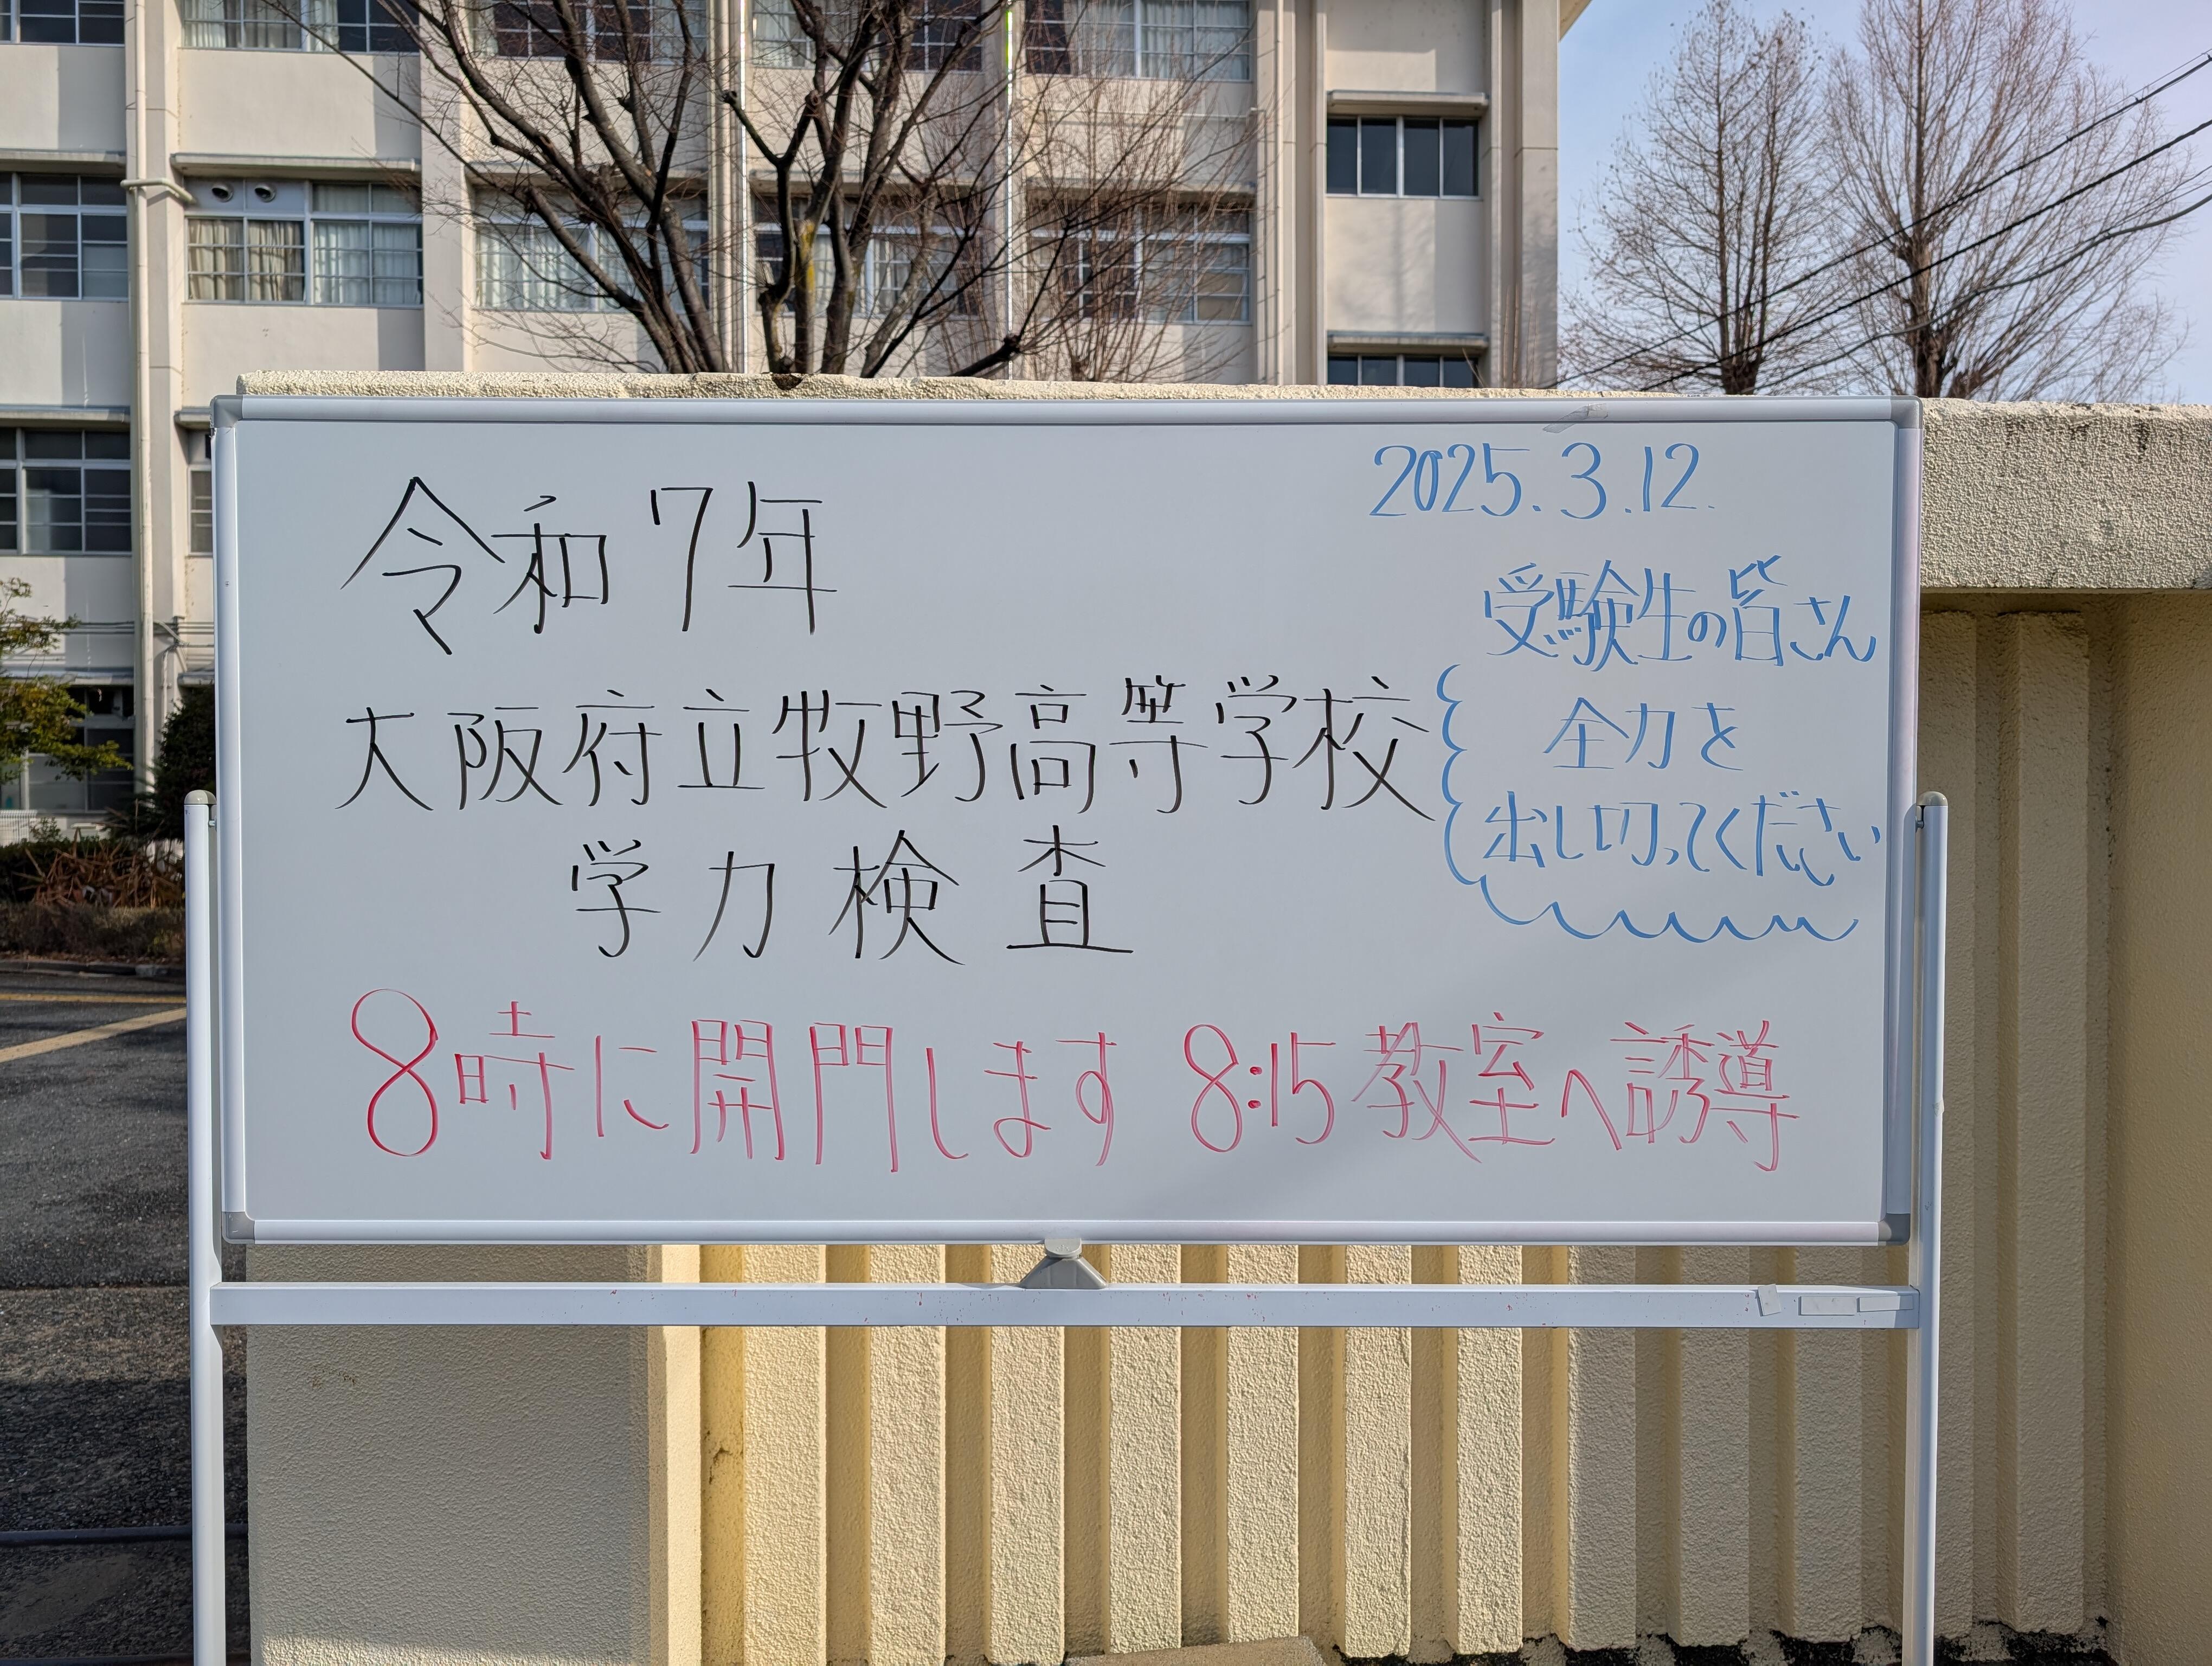 2025.3.12.
令和7年
大阪府立牧野高等学校
学力検査
受験生の皆さん
全力を
出し切ってください
8時に開門します 8:15教室へ誘導